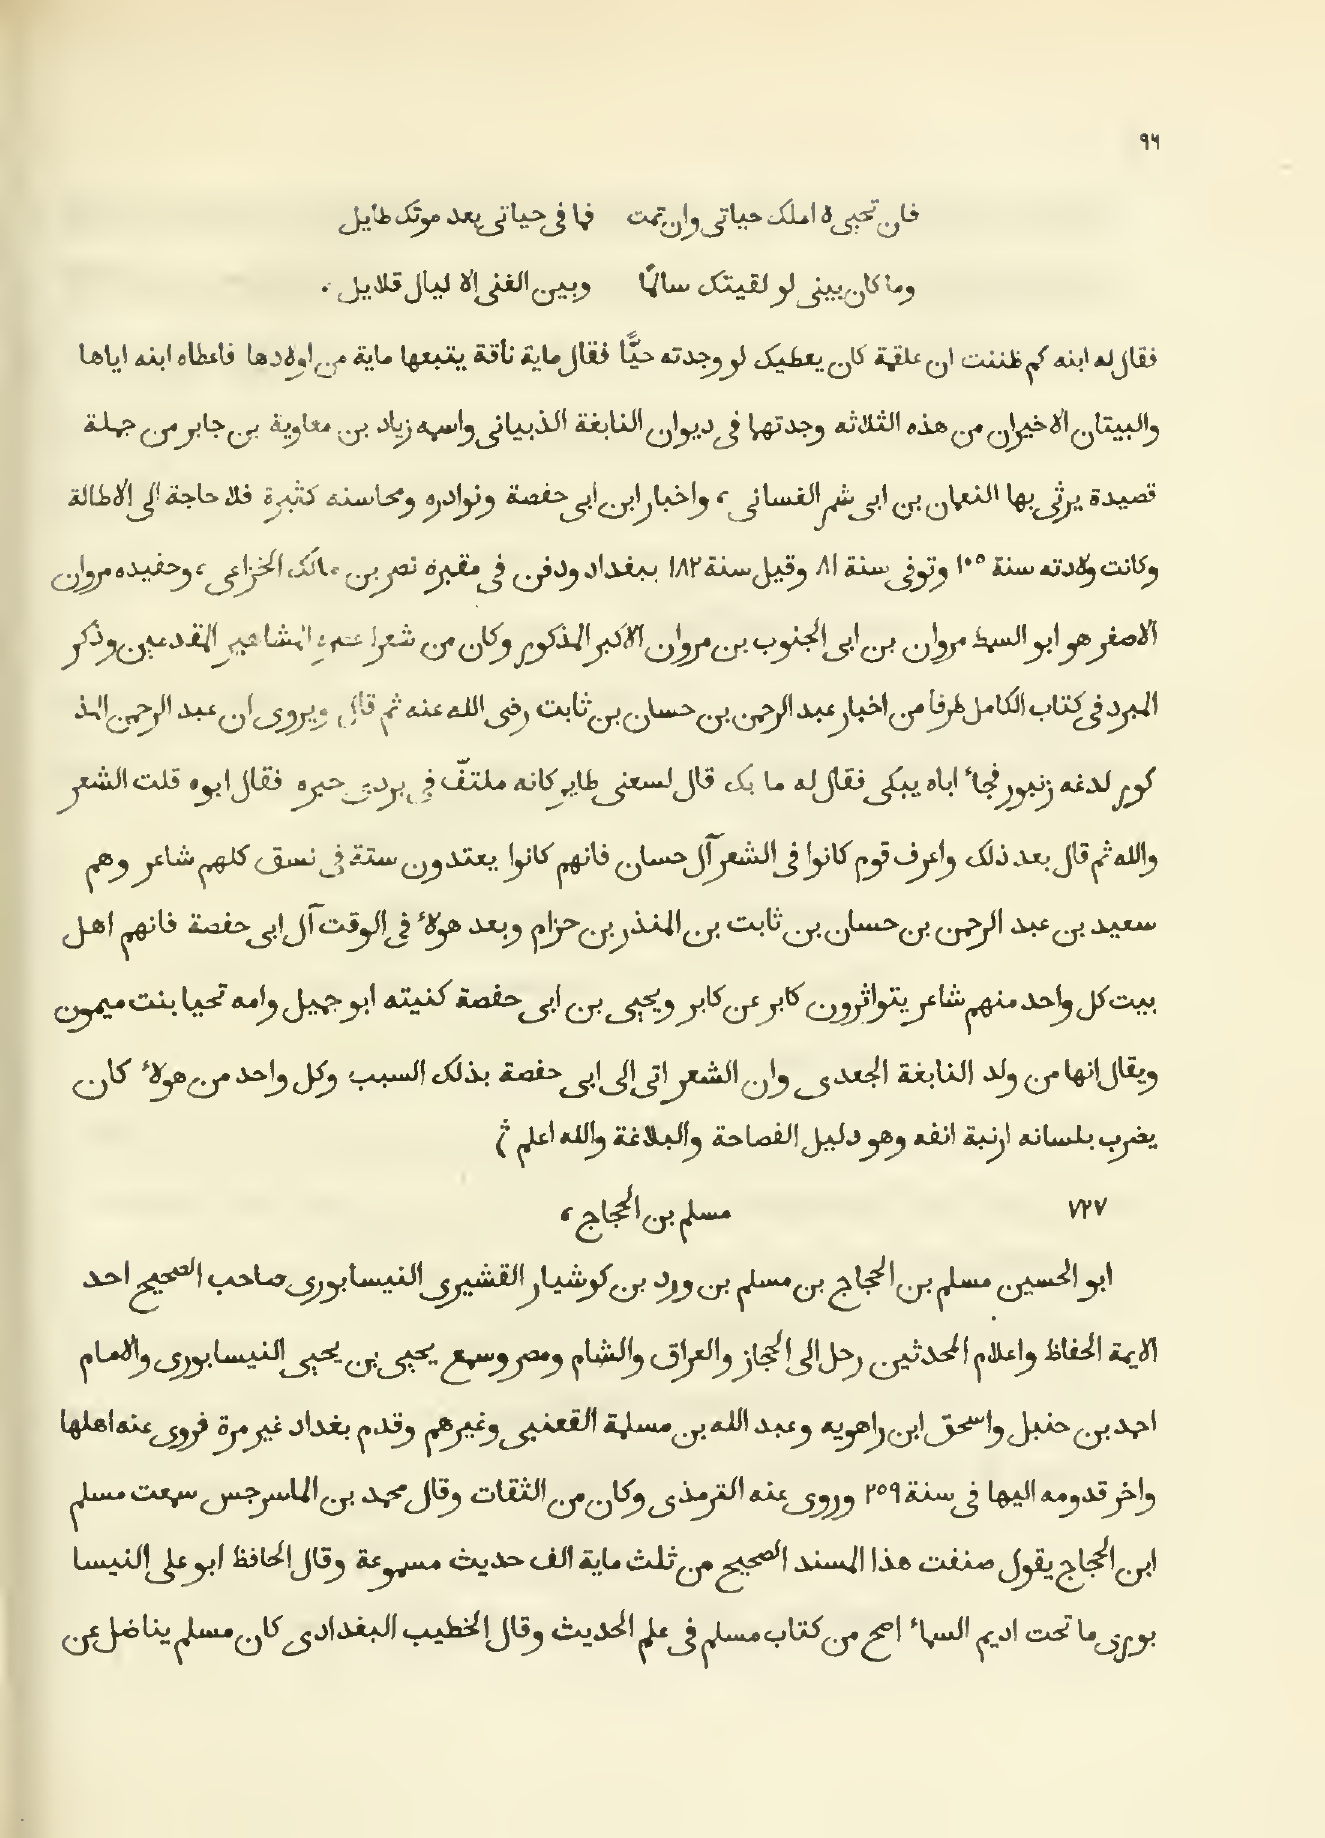 ٩٦
فان تحيى لا املك حياتى وان تمت فما فى حياتى بعد موتك طايل
وما كان بينى لو لقيتك سالمًا وبين الغنى الا ليال قلايل ،
فقال له ابنه كم ظننت ان علقمة كان يعطيك لو وجدته حيًّا فقال ماية ناقة يتبعها ماية من اولادها فاعطاه ابنه اياها
والبيتان الاخيران من هذه الثلاثه وجدتهما فى ديوان النابغة الذبيانى واسمه زياد بن معاوية بن جابر من جملة
قصيدة يرثى بها النعمان بن ابى شمر الغسانى ، واخبار ابن ابى حفصة ونوادره ومحاسنه كثيرة فلا حاجة الى الاطالة
وكانت ولادته سنة ١٠٥ وتوفى سنة ٨١ وقيل سنة ١٨٢ ببغداد ودفن فى مقبرة نصر بن مالك الخزاعى ، وحفيده مروان
الاصغر هو ابو السمط مروان بن ابى الجنوب بن مروان الاكبر المذكور وكان من شعرا عصره المشاهير المقدمين وذكر
المبرد فى كتاب الكامل طرفا من اخبار عبد الرحمن بن حسان بن ثابت رضى الله عنه ثم قال ويروى ان عبد الرحمن المذ
كور لدغه زنبور فجاء اباه يبكى فقال له ما بك قال لسعنى طاير كانه ملتفّ فى بردى حبره فقال ابوه قلت الشعر
والله ثم قال بعد ذلك واعرف قوم كانوا فى الشعر آل حسان فانهم كانوا يعتدون ستة فى نسق كلهم شاعر وهم
سعيد بن عبد الرحمن بن حسان بن ثابت بن المنذر بن حزام وبعد هولاء فى الوقت آل ابى حفصة فانهم اهل
بيت كل واحد منهم شاعر يتواثرون كابر عن كابر ويحيى بن ابى حفصة كنيته ابو جميل وامه تحيا بنت ميمون
ويقال انها من ولد النابغة الجعدى وان الشعر اتى الى ابى حفصة بذلك السبب وكل واحد من هولاء كان
يضرب بلسانه ارنبة انفه وهو دليل الفصاحة والبلاغة والله اعلم
٧٢٧ مسلم بن الحجاج ،
ابو الحسين مسلم بن الحجاج بن مسلم بن ورد بن كوشيار القشيرى النيسابورى صاحب الصحيح احد
الايمة الحفاظ واعلام المحدثين رحل الى الحجاز والعراق والشام ومصر وسمع يحيى بن يحيى النيسابورى والامام
احمد بن حنبل واسحق ابن راهويه وعبد الله بن مسلمة القعنبى وغيرهم وقدم بغداد غير مرة فروى عنه اهلها
واخر قدومه اليها فى سنة ٢٥٩ وروى عنه الترمذى وكان من الثقات وقال محمد بن الماسرجس سمعت مسلم
ابن الحجاج يقول صنفت هذا المسند الصحيح من ثلث ماية الف حديث مسموعة وقال الحافظ ابو على النيسا
بورى ما تحت اديم السماء اصح من كتاب مسلم فى علم الحديث وقال الخطيب البغدادى كان مسلم يناضل عن